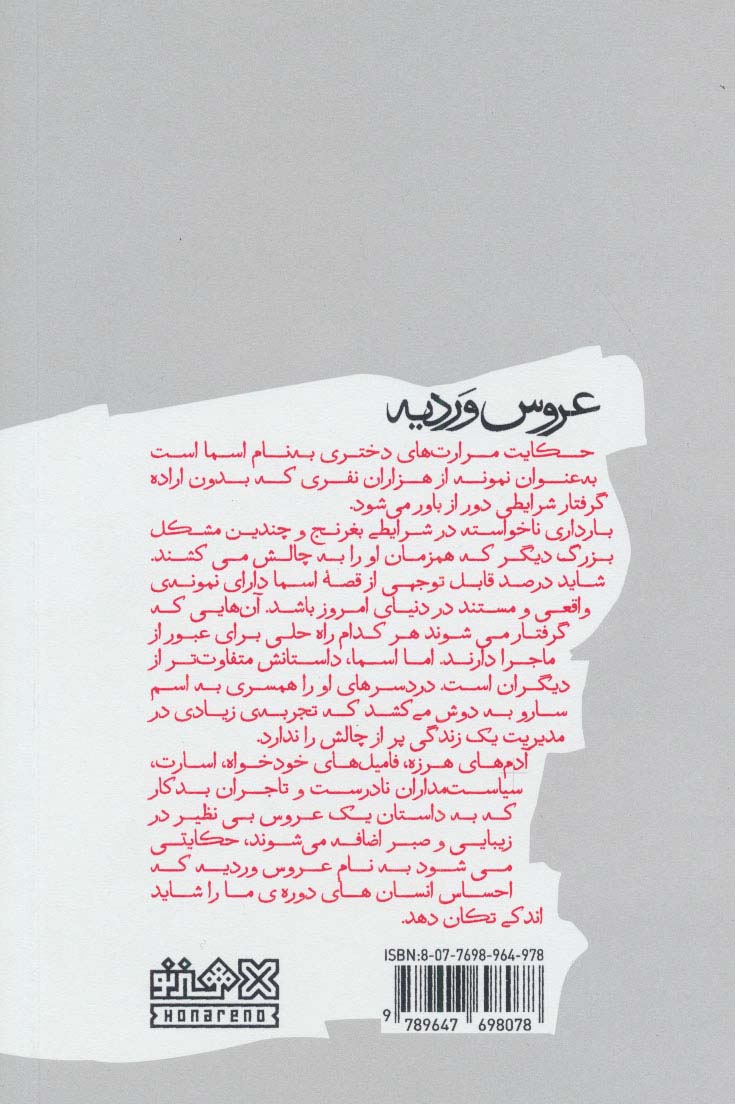 عروس وَردیه
حکایت مرارت‌های دختری به‌نام اسما است
به‌عنوان نمونه از هزاران نفری که بدون اراده
گرفتار شرایطی دور از باور می‌شود.
بارداری ناخواسته در شرایطی بغرنج و چندین مشکل
بزرگ دیگر که همزمان او را به چالش می کشند.
شاید درصد قابل توجهی از قصهٔ اسما دارای نمونه‌ی
واقعی و مستند در دنیای امروز باشد. آن‌هایی که
گرفتار می شوند هر کدام راه حلی برای عبور از
ماجرا دارند. اما اسما، داستانش متفاوت‌تر از
دیگران است. دردسرهای او را همسری به اسم
سارو به دوش می‌کشد که تجربه‌ی زیادی در
مدیریت یک زندگی پر از چالش را ندارد.
آدم‌های هرزه، فامیل‌های خودخواه، اسارت،
سیاست‌مداران نادرست و تاجران بدکار
که به داستان یک عروس بی نظیر در
زیبایی و صبر اضافه می‌شوند، حکایتی
می شود به نام عروس وردیه که
احساس انسان های دوره ی ما را شاید
اندکی تکان دهد.
ISBN:8-07-7698-964-978
9 789647 698078
هنر نو
Honareno